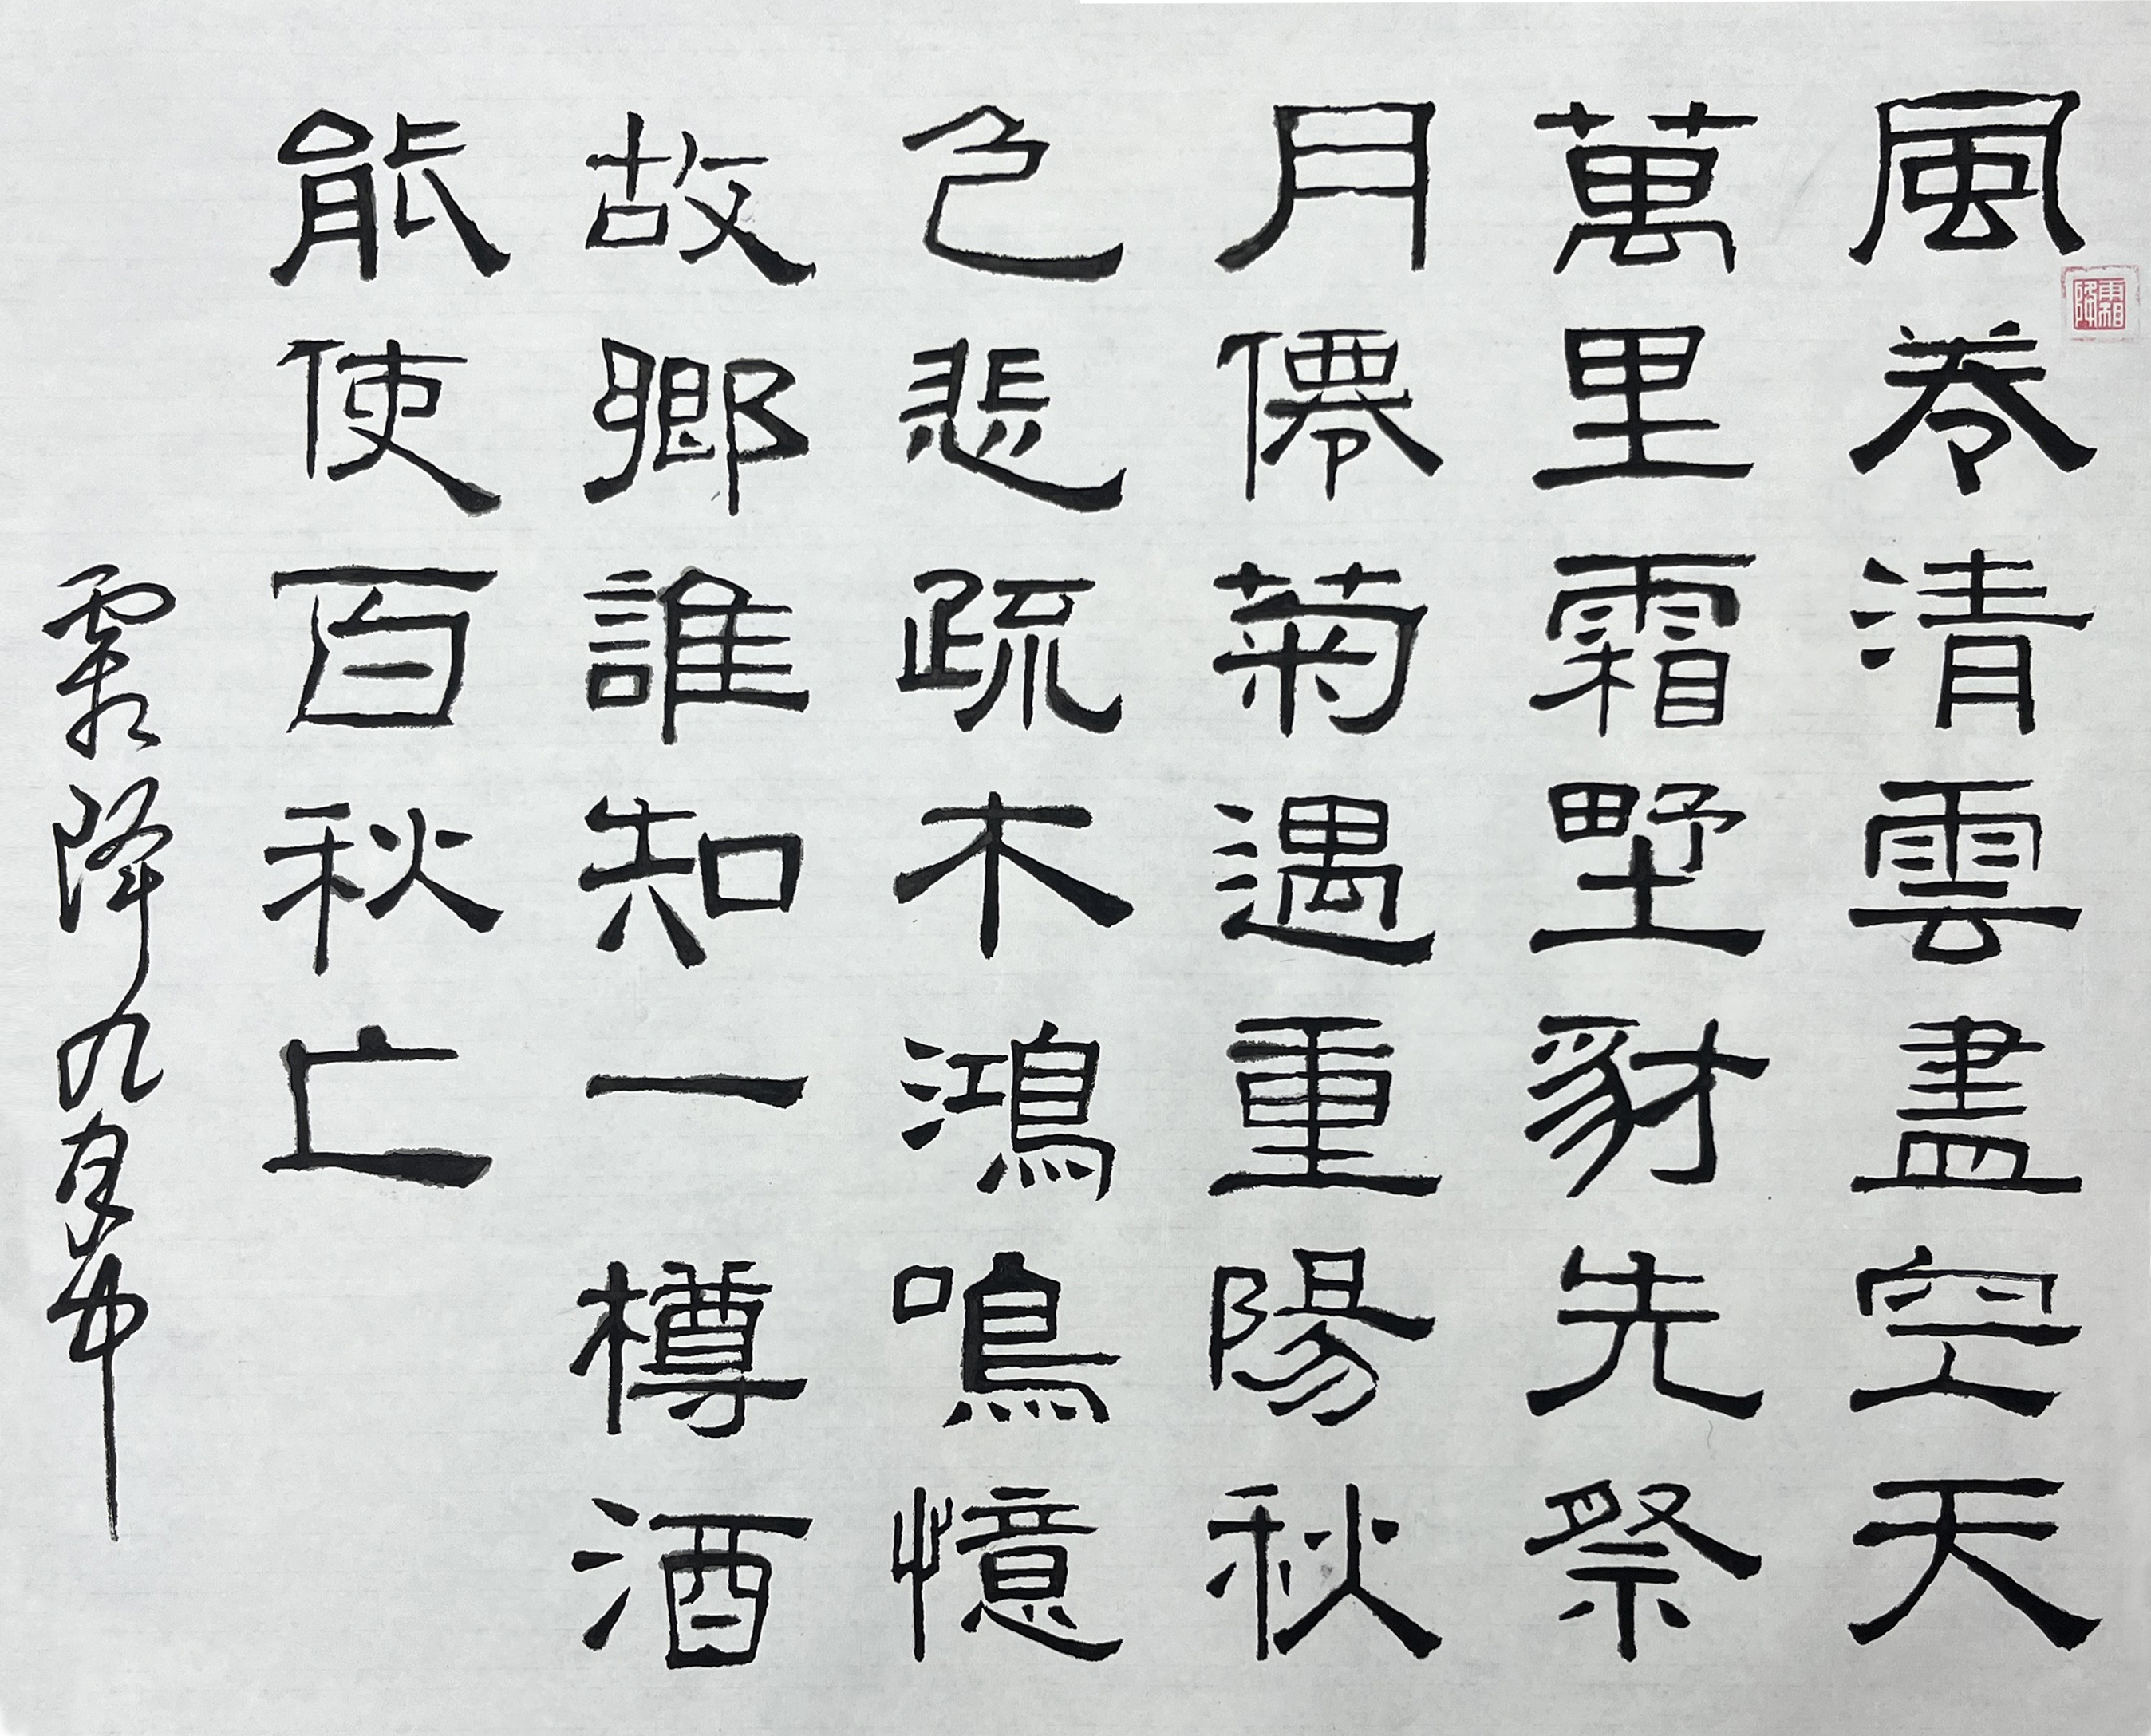 風卷清雲盡空天
萬里霜野豺先祭
月僊菊遇重陽秋
色悲疏木鴻鳴憶
故鄉誰知一樽酒
能使百秋亡
霜降九
霜降